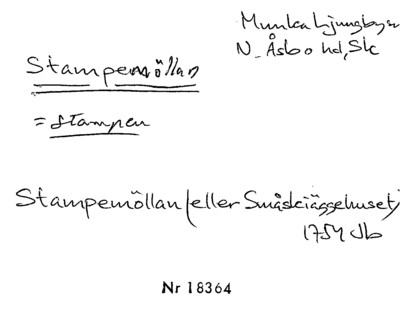 Munka Ljungby sn
N. Åsbo hd, Sk
Stampemöllan
= Stampen
Stampemöllan (eller Småskiäggehuset)
1754 Jb
Nr 18364